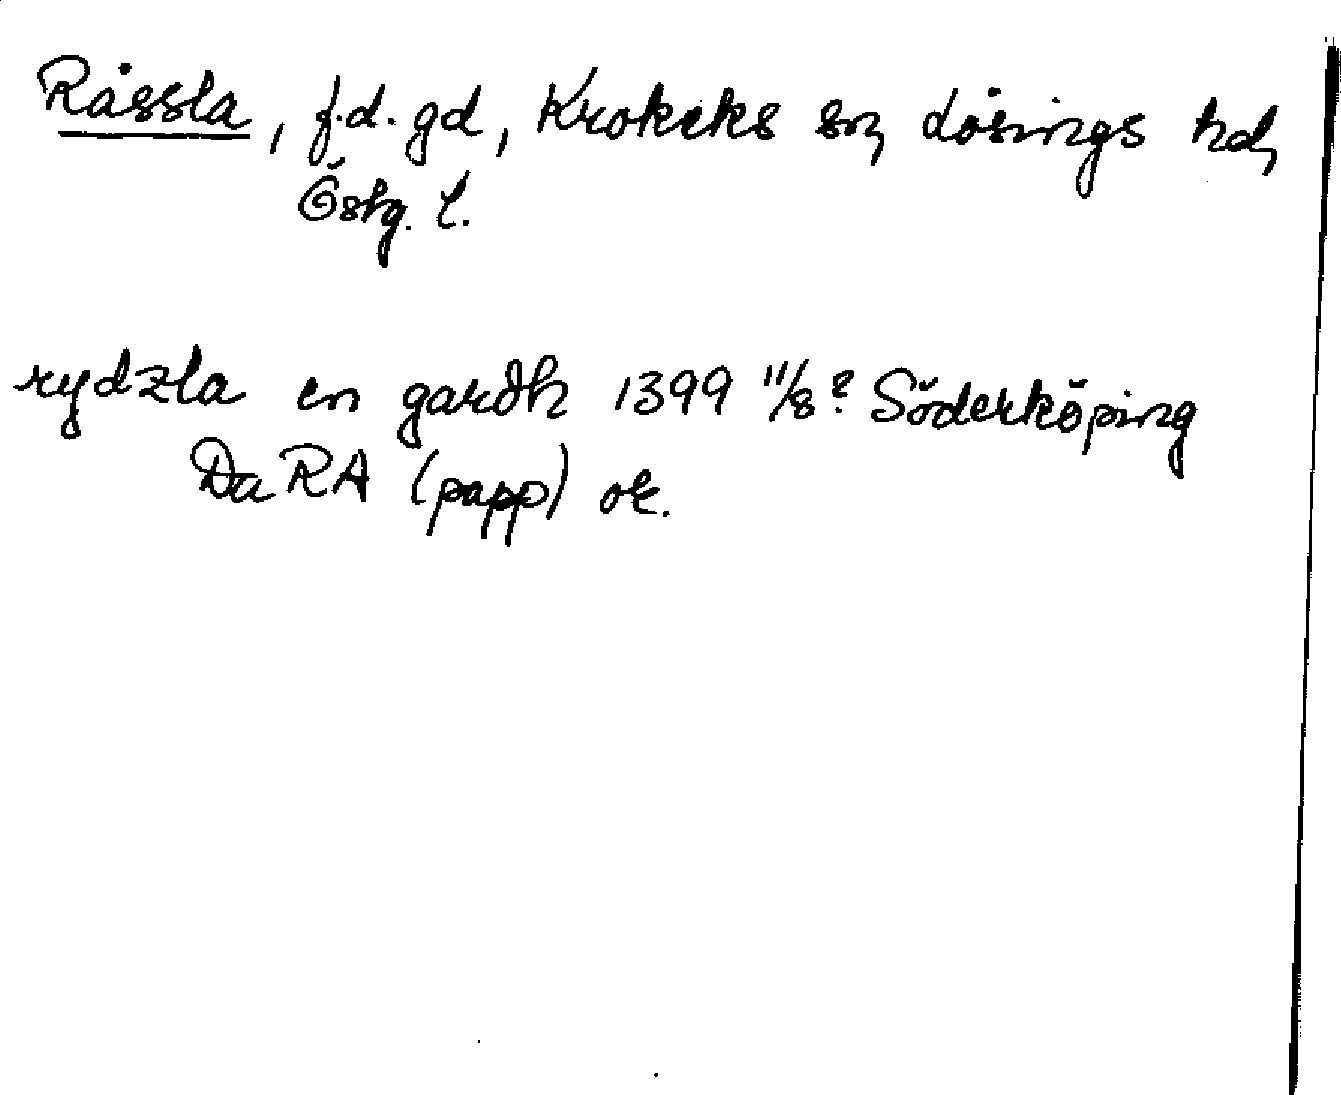 Råssla, f.d. gd, Krokeks sn, Lösings hd,
Östg. l.
rydzla en gardh 1399 11/8? Söderköping
Da RA (papp) or.